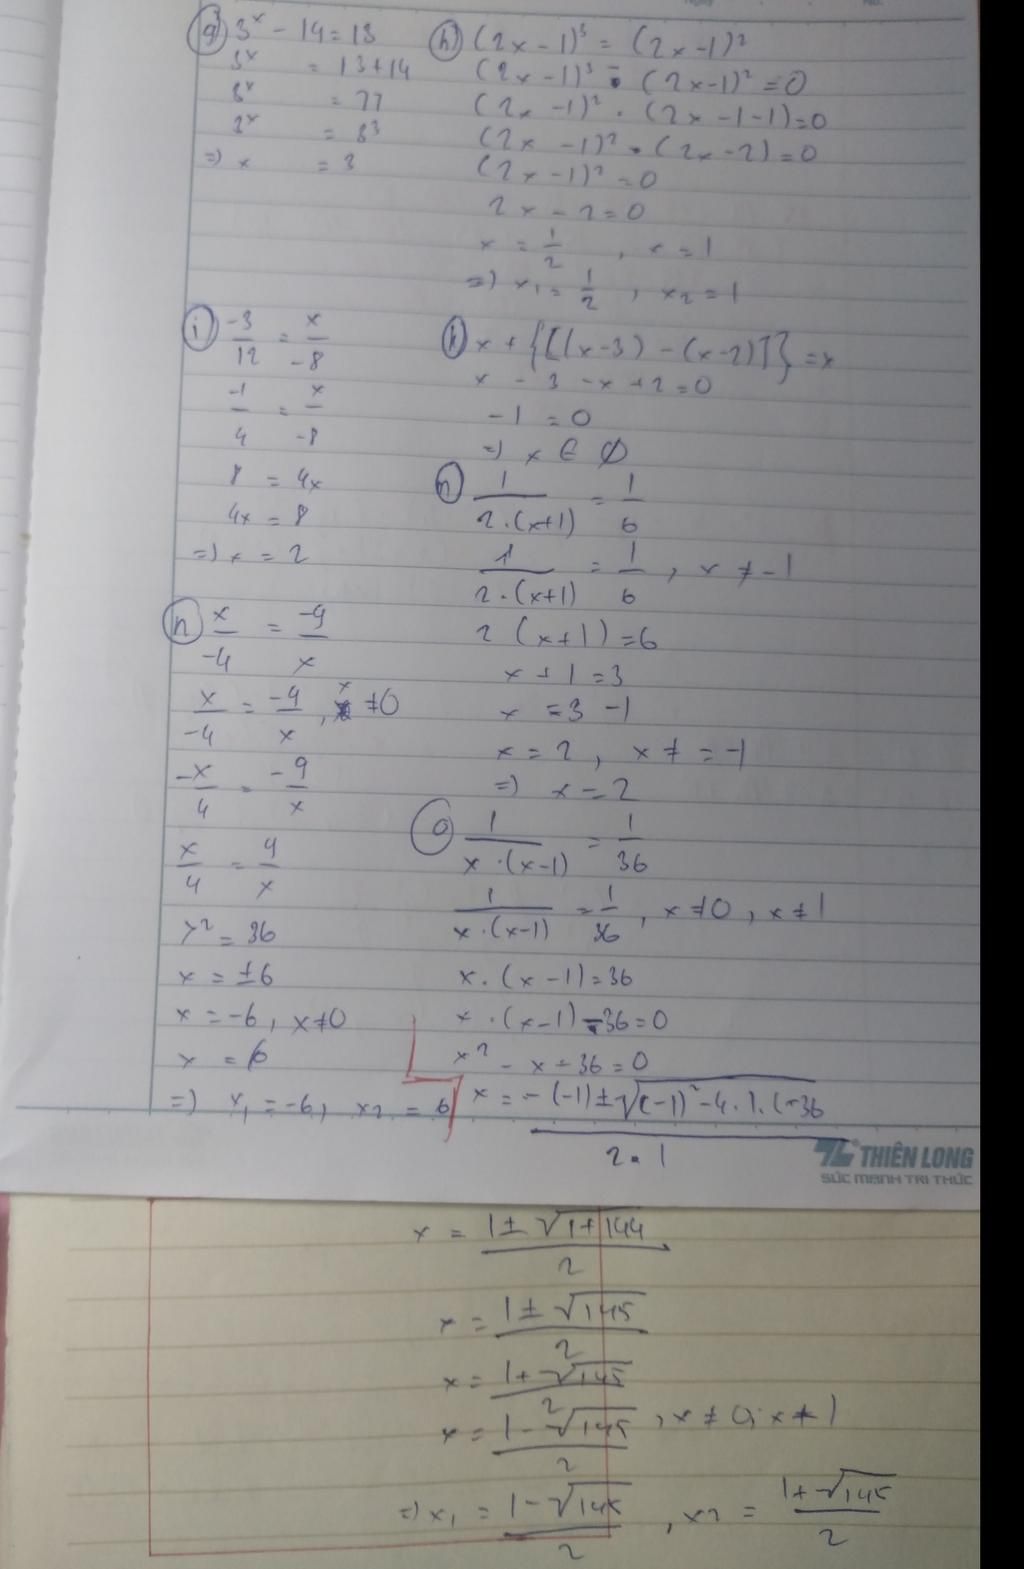 g) 3^x - 14 = 13
3^x = 13+14
3^x = 27
3^x = 3^3
=> x = 3
h) (2x-1)^3 = (2x-1)^2
(2x-1)^3 - (2x-1)^2 = 0
(2x-1)^2 . (2x-1-1)=0
(2x-1)^2 . (2x-2)=0
(2x-1)^2 = 0
2x-2=0
x = 1/2 , x = 1
=> x1 = 1/2 , x2 = 1
i) -3/12 = x/-8
-1/4 = x/-8
8 = 4x
4x = 8
=> x = 2
k) x + {[(x-3) - (x-2)]} = x
x - 3 - x + 2 = 0
-1 = 0
=> x ∈ Ø
n) x/-4 = -9/x
x/-4 = -9/x , x ≠ 0
-x/4 = -9/x
x/4 = 9/x
x^2 = 36
x = ±6
x = -6, x≠0
x = 6
=> x1 = -6, x2 = 6
n) 1/2.(x+1) = 1/6
1/2.(x+1) = 1/6 , x ≠ -1
2(x+1)=6
x + 1 = 3
x = 3 - 1
x = 2 , x ≠ = -1
=> x = 2
o) 1/x.(x-1) = 1/36
1/x.(x-1) = 1/36 , x ≠ 0 , x ≠ 1
x.(x-1)=36
x.(x-1)-36=0
x^2 - x - 36 = 0
x = -(-1)±√(-1)^2-4.1.(-36 / 2.1
THIÊN LONG
SỨC MẠNH TRI THỨC
x = 1±√1+144 / 2
x = 1±√145 / 2
x = 1+√145 / 2
x = 1-√145 / 2 , x ≠ 0, x ≠ 1
=> x1 = 1-√145 / 2 , x2 = 1+√145 / 2